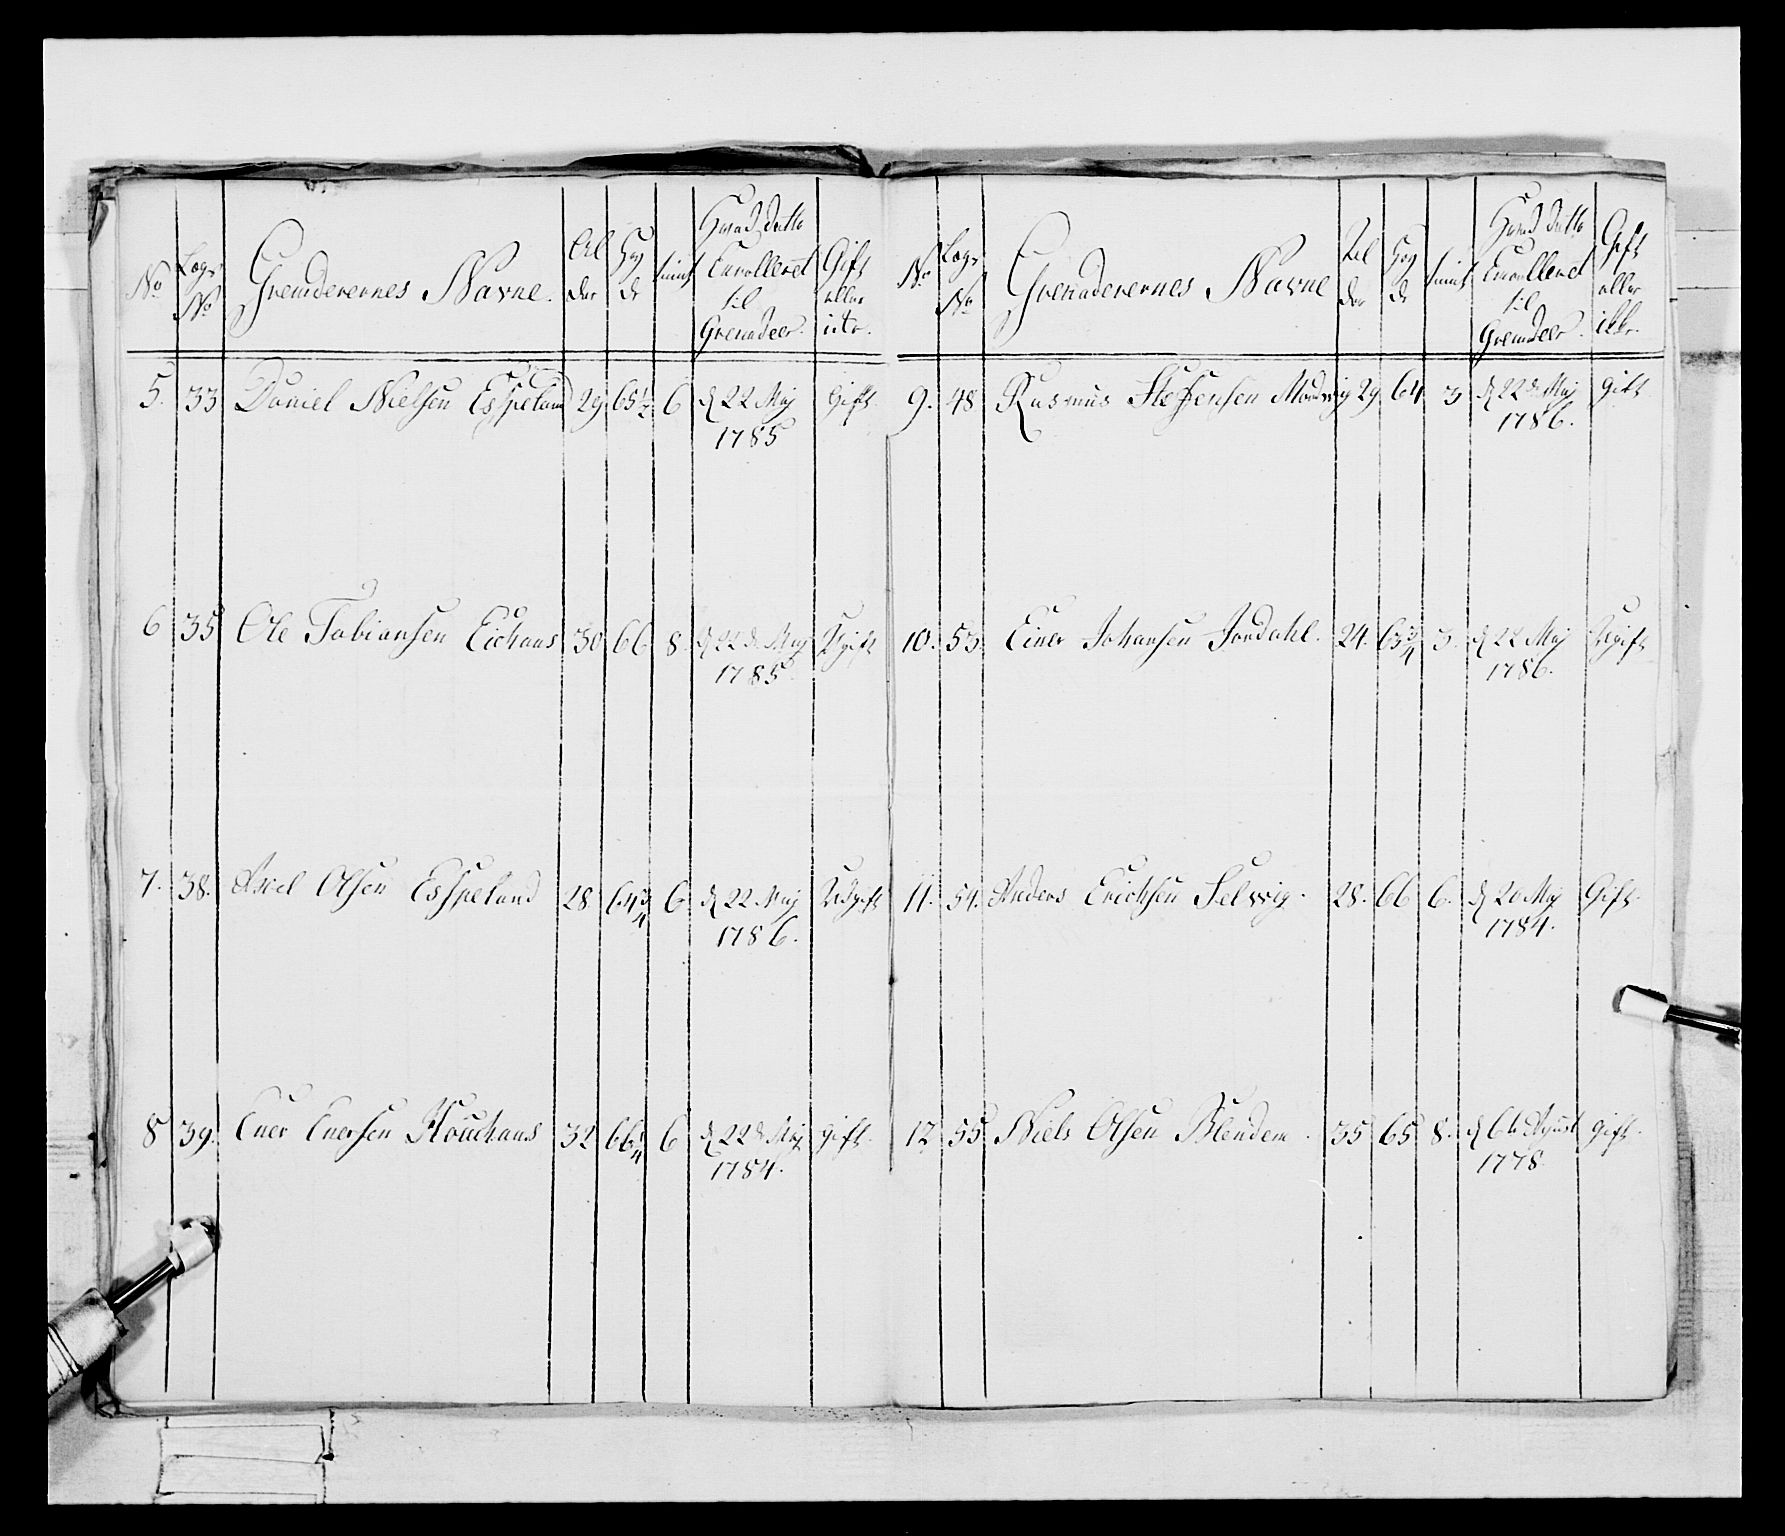 No Lægs No Grenaderernes Navne. Al der Høy de tient Hvad Datto Enrolleret til Grenadeer. Gift eller ikke.
5. 33 Daniel Nielsen Espeland 29 65 1/2 6 d 22 Maj 1785 Gift
6 35 Ole Tobiansen Eichaas 30 66 8. d 22 d. Maj 1785. Ugift
7. 38. Axel Olsen Espeland 28 64 3/4 6 d 22 Maj 1786. Ugift
8 39. Ener Enersen Houchaas 32 66 1/4 6 d 22 d. Maj 1784. gift.
No Lægs No Grenaderernes Navne Al der Høy de tient Hvad Datto Enrolleret til Grenadeer. Gift eller ikke.
9. 48 Rasmus Steffensen 29 64 3 d 22 d. Maj 1786. gift
10. 53. Einer Johansen Jordahl. 24. 65 3/4 3. d 22 Maj 1786. Ugift
11. 54. Anders Erichsen Selvvig. 28. 66 6. d 20 Maj 1784. Gift.
12 55 Niels Olsen Blendem. 35 65 8. d 6te August 1778. gift.